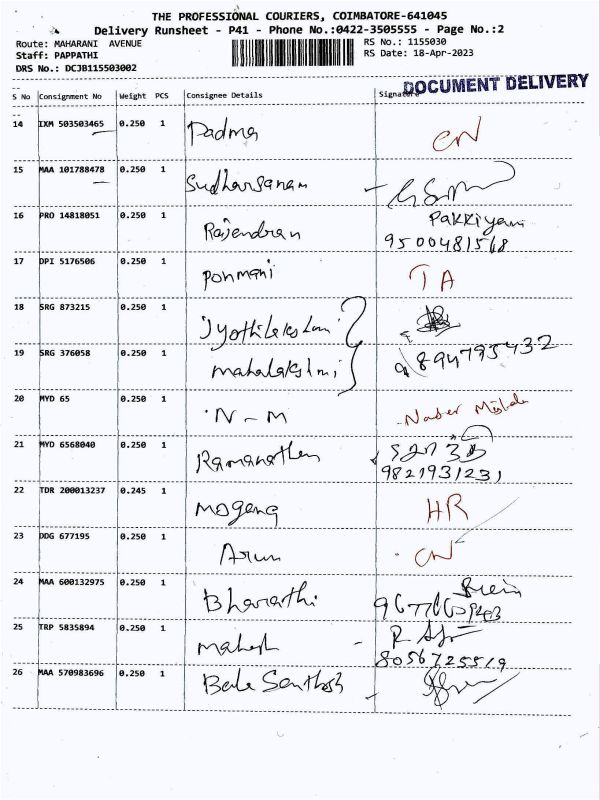 THE PROFESSIONAL COURIERS, COIMBATORE-641045
Delivery Runsheet - P41 - Phone No.:0422-3505555 - Page No.:2
Route: MAHARANI AVENUE RS No.: 1155030
Staff: PAPPATHI RS Date: 18-Apr-2023
DRS No.: DCJB115503002
DOCUMENT DELIVERY
S No Consignment No Weight PCS Consignee Details Signature
14 IXM 503503465 0.250 1 Padma CN
15 MAA 101788478 0.250 1 Sudharsanam
16 PRO 14818051 0.250 1 Rajendran Pakkiyam
9500481568
17 DPI 5176506 0.250 1 Ponmani TA
18 SRG 873215 0.250 1 Jyothilakshmi
19 SRG 376058 0.250 1 Mahalakshmi 9894795432
20 MYD 65 0.250 1 N-M
21 MYD 6568040 0.250 1 Ramanathan
9821931231
22 TDR 200013237 0.245 1 Mogeng HR
23 DDG 677195 0.250 1 Arun CN
24 MAA 600132975 0.250 1 Bharathi
25 TRP 5835894 0.250 1 Mahesh
8056725519
26 MAA 570983696 0.250 1 Bala Santhosh